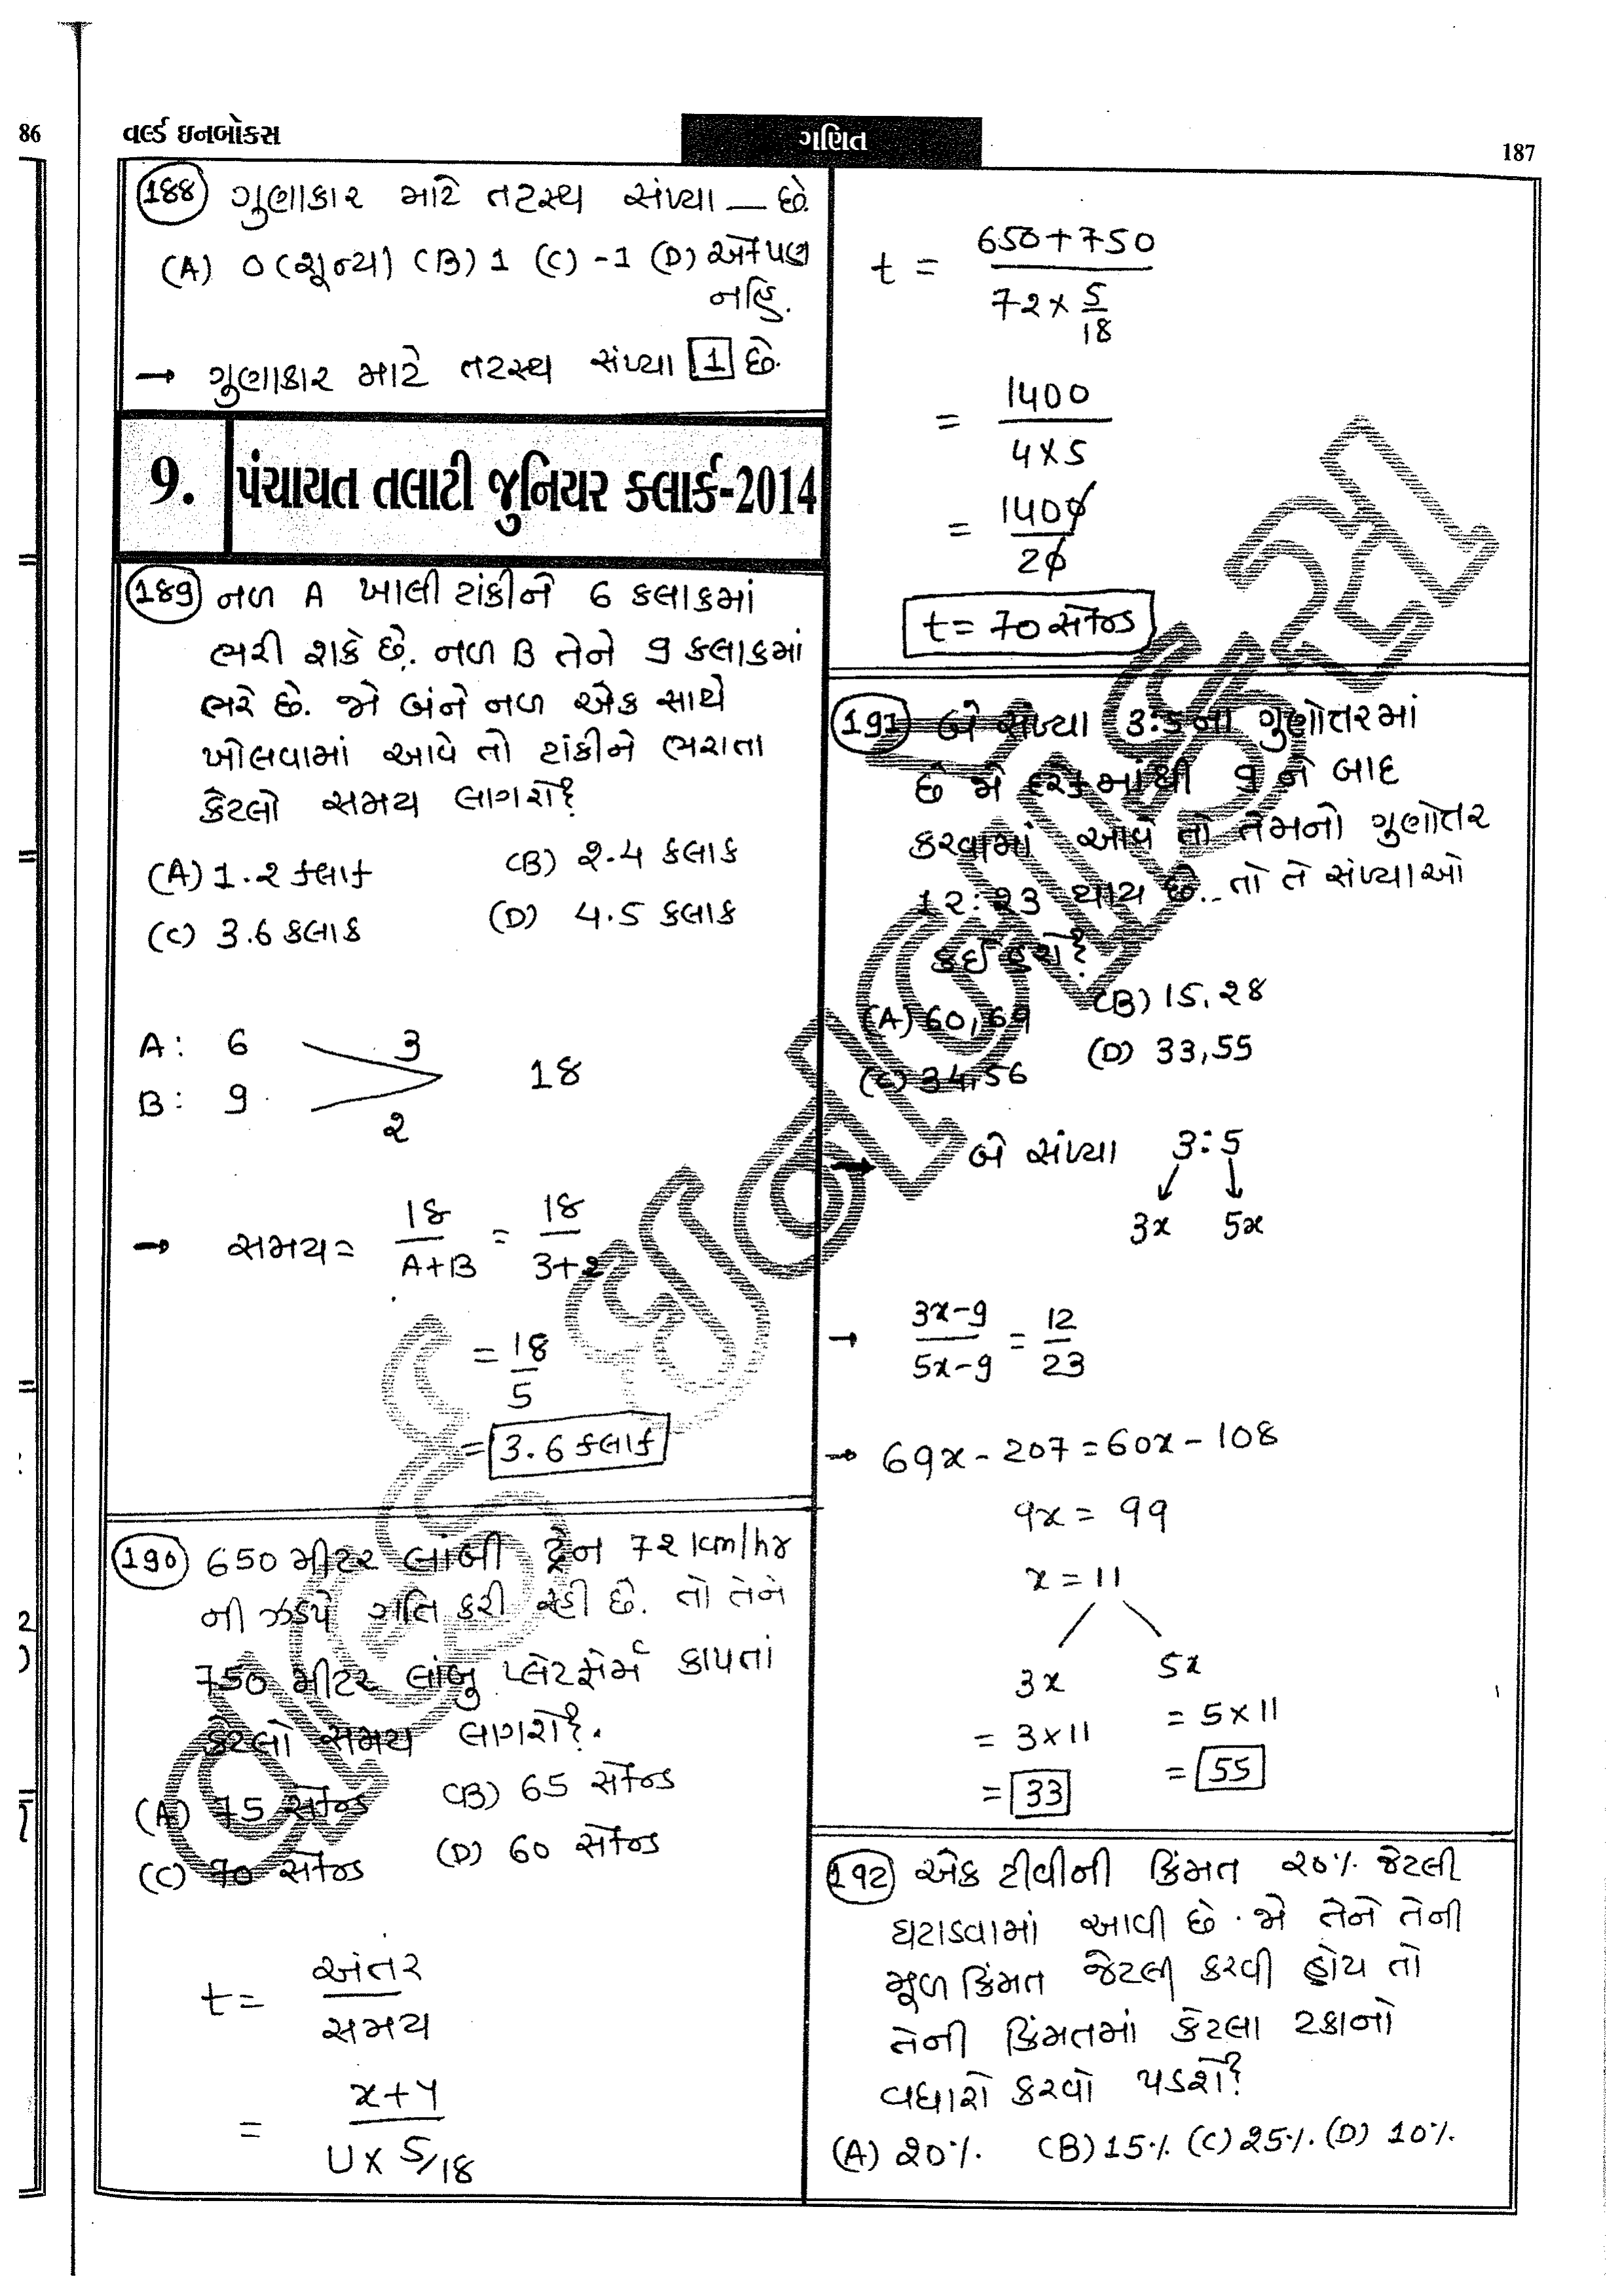 86
વર્લ્ડ ઇનબોક્સ
ગણિત
187
188 ગુણાકાર માટે તટસ્થ સંખ્યા — છે.
(A) 0 (શૂન્ય) (B) 1 (C) -1 (D) એકપણ
નહિ.
→ ગુણાકાર માટે તટસ્થ સંખ્યા 1 છે.
9. પંચાયત તલાટી જુનિયર ક્લાર્ક-2014
189 નળ A ખાલી ટાંકીને 6 કલાકમાં
ભરી શકે છે. નળ B તેને 9 કલાકમાં
ભરે છે. જો બંને નળ એક સાથે
ખોલવામાં આવે તો ટાંકીને ભરાતા
કેટલો સમય લાગશે?
(A) 1.2 કલાક (B) 2.4 કલાક
(C) 3.6 કલાક (D) 4.5 કલાક
A: 6 3
18
B: 9 2
→ સમય = 18/(A+B) = 18/(3+2)
= 18/5
= 3.6 કલાક
190 650 મીટર લાંબી ટ્રેન 72 km/hr
ની ઝડપે ગતિ કરી રહી છે. તો તેને
750 મીટર લાંબુ પ્લેટફોર્મ કાપતાં
કેટલો સમય લાગશે?.
(A) 75 સેકન્ડ (B) 65 સેકન્ડ
(C) 70 સેકન્ડ (D) 60 સેકન્ડ
t = અંતર/સમય
= (x+y)/(U× 5/18)
t = (650+750)/(72× 5/18)
= 1400/(4×5)
= 1400/20
t = 70 સેકન્ડ
191 બે સંખ્યા 3:5ના ગુણોત્તરમાં
છે જો દરેકમાંથી 9 ને બાદ
કરવામાં આવે તો તેમનો ગુણોત્તર
12:23 થાય છે.. તો તે સંખ્યાઓ
કઈ હશે?
(A) 60, 69 (B) 15, 28
(C) 34, 56 (D) 33, 55
→ બે સંખ્યા 3:5
3x 5x
→ (3x-9)/(5x-9) = 12/23
→ 69x - 207 = 60x - 108
9x = 99
x = 11
3x 5x
= 3×11 = 5×11
= 33 = 55
192 એક ટીવીની કિંમત 20% જેટલી
ઘટાડવામાં આવી છે. જો તેને તેની
મૂળ કિંમત જેટલી કરવી હોય તો
તેની કિંમતમાં કેટલા ટકાનો
વધારો કરવો પડશે?
(A) 20%. (B) 15% (C) 25%. (D) 10%.